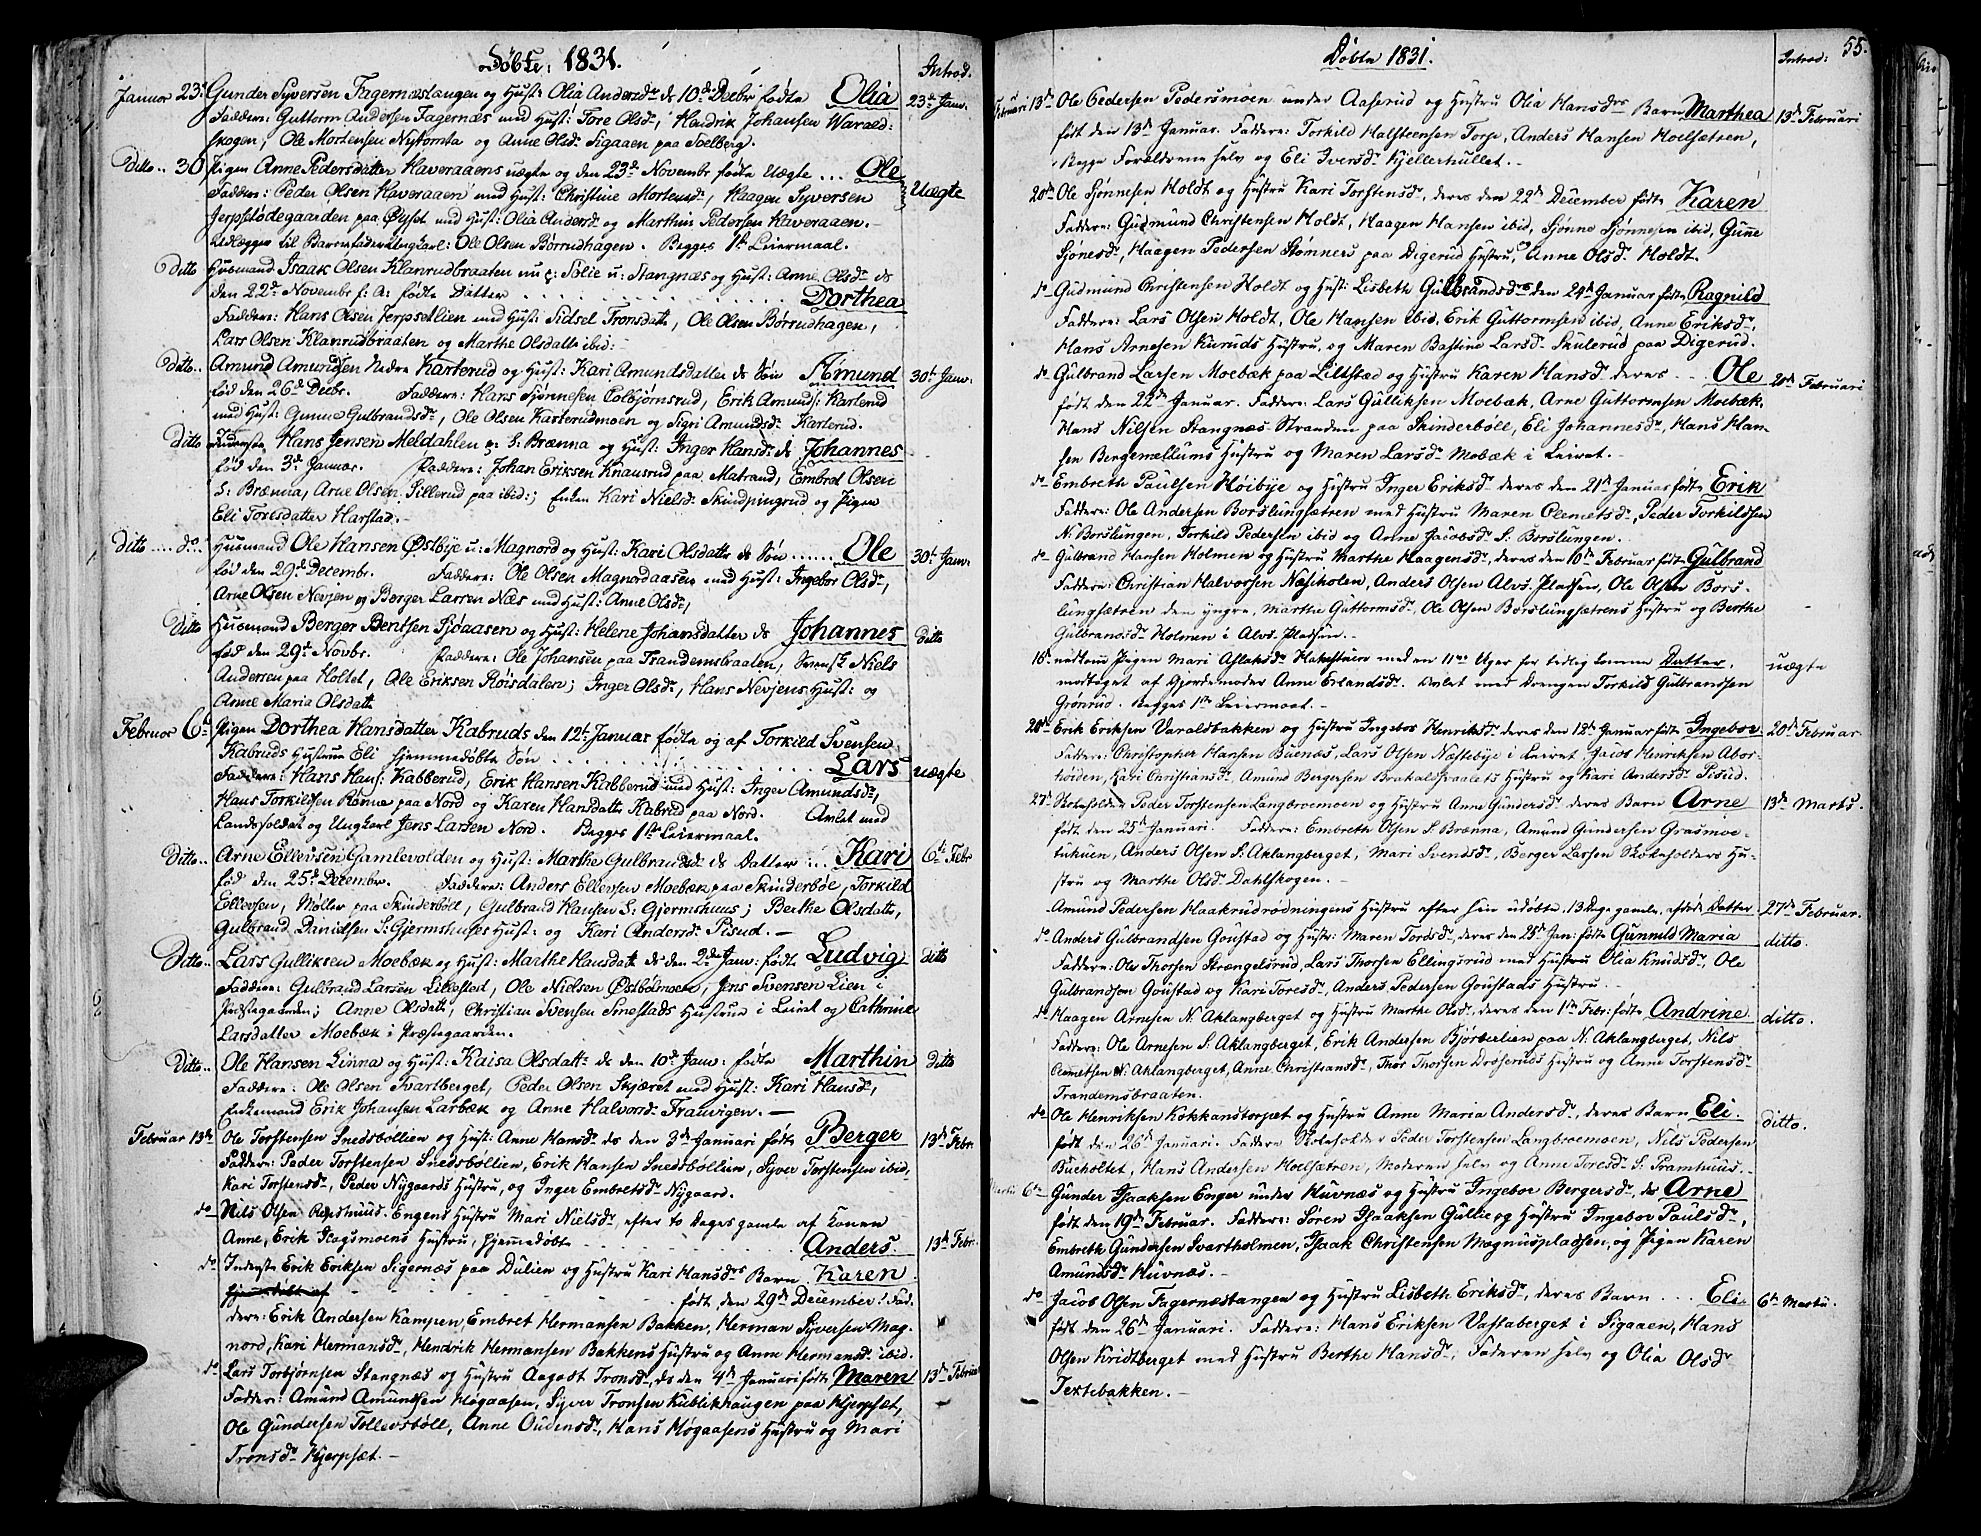 Døbte, 1831.
Introd.
Januar 23. Gunder Syversen Fagernæstangen og Hust: Olia Andersdr ds 10de Decbr fødte Olia 23de Janv.
Faddere: Guttorm Andersen Fagernæs med Hust: Tore Olsdr, Hendrik Johansen Warald-
skogen, Ole Mortensen Nytomta og Anne Olsdr Sigaaen paa Soelberg.
Ditto .. 30 Pigen Anne Pedersdatter Haveraaens uægte og den 23de Novembr fødte Uægte ... Ole Uægte
Faddere: Peder Olsen Haveraaen med Hust: Christine Mortensdr, Haagen Syversen
Jerpsetødegaarden paa Øyset med Hust: Olia Andersdr og Marthin Pedersen Haveraaen.
Udlægger til Barnefader Ungkarl: Ole Olsen Børrudhagen. Begges 1ste Leiermaal.
Ditto Husmand Isaak Olsen Klanrudbraaten nu p: Solie u: Stangnæs og Hust: Arne Olsdr ds
den 22de Novembr f: A: fødte Datter . . . . Dorthea
Faddere: Hans Olsen Jerpsetlien med Hust: Sidsel Tronsdattr, Ole Olsen Børrudhagen,
Lars Olsen Klanrudbraaten og Marthe Olsdattr ibid:
Ditto.. Amund Amundsen Nedre Karterud og Hust: Kari Amundsdatter ds Søn Amund 30te Janv.
fød den 26de Decbr. Faddere: Hans Sjønnesen Colbjørnsrud, Erik Amunds: Karterud
med Hust: Gunne Gulbrandsdr, Ole Olsen Karterudmoen og Sigri Amundsdr Karterud.
Ditto Inderste Hans Jensen Meldahlen p: S. Brænna og Hust: Inger Hansdr ds Johannes
fød den 3de Januar. Faddere: Johan Eriksen Knausrud paa Matrand, Embret Olsen
S: Brænna, Arne Olsen Sillerud paa ibid:; Enken Kari Nielsdr Skindpingrud og Pigen
Eli Toresdatter Harstad.
Ditto .... do .. Husmand Ole Hansen Østbye u: Magnord og Hust: Kari Olsdattr ds Søn ...... Ole 30te Janv.
fød den 29de Decembr. Faddere: Ole Olsen Magnordaasen med Hust: Ingebor Olsdr,
Arne Olsen Nevjen og Berger Larsen Næs med Hust: Anne Olsdr,
Ditto Husmand Berger Bentsen Sjøaasen og Hust: Helene Johansdatter ds Johannes ditto
fød den 29de Novbr. Faddere: Ole Johansen paa Trandemsbraaten, Svensk Niels
Andersen paa Holtet, Ole Eriksen Røisdalen; Inger Olsdr, Hans Nevjens Hust: og
Anne Maria Olsdatt
Februar 6te Pigen Dorthea Hansdatter Kabruds den 12te Januar fødte og af Torkild Svensen
Kabruds Hustrue Eli hjemmedøbte Søn . . . . Lars uægte
Faddere: Hans Hans: Kabberud, Erik Hansen Kabberud med Hust: Inger Amundsdr,
Hans Torkildsen Rønne paa Nord og Karen Hansdattr Kabrud paa Nord. Avlet med
Landsoldat og Ungkarl Jens Larsen Nord. Begges 1ste Leiermaal.
Ditto.. Arne Ellevsen Gamlevolden og Hust: Marthe Gulbrandsdr ds Datter ... Kari 6te Febr
fød den 25de Decembr. Faddere: Anders Ellevsen Moebæk paa Skinderbøe, Torkild
Ellevsen, Møller paa Skinderbøll, Gulbrand Hansen S: Gjermshuus; Berthe Olsdattr,
Gulbrand Davidsen S: Gjermshuses Hust: og Kari Andersdr Pisud.
Ditto.. Lars Gulliksen Moebæk og Hust: Marthe Hansdatt ds den 2de Janv: fødte Ludvig ditto
Faddere: Gulbrand Larsen Lillested, Ole Nielsen Østbølmoen, Jens Svensen Lien i
Præstegaarden; Anne Olsdatt, Christian Svensen Smestads Hustrue i Leiret og Cathrine
Larsdatter Moebæk i Præstegaarden.
Ditto.. Ole Hansen Linna og Hust: Kaisa Olsdattr ds den 10de Janv: fødte Marthin Ditto
Faddere: Ole Olsen Svartberget, Peder Olsen Skjæret med Hust: Kari Hansdr,
Enkemand Erik Johansen Larbæk og Anne Halvorsdr Frauvigen.
Februar 13de Ole Torstensen Snedsbøllien og Hust: Anne Hansdr ds den 3de Januari fødte Berger 13de Febr.
Faddere: Peder Torstensen Snedsbøllien, Erik Hansen Snedsbøllien, Syver Torstensen ibid,
Kari Torstensdr, Peder Nygaards Hustru, og Inger Embretsdr Nygaard.
do Nils Olsen Opsthuus. Engens Hustru Mari Nielsdr, efter to Dages gamle af Konen
Anne, Erik Skagsmoens Hustru, hjemmedøbte . . . Anders. 13de Febr.
do Inderste Erik Eriksen Sigernæs paa Dulien og Hustru Kari Hansdrs Barn Karen
født den 29de December. Fad-
dere: Erik Andersen Kampen, Embret Hermansen Bakken, Herman Syversen Mag-
nord, Kari Hermansdr, Hendrik Hermansen Bakkens Hustru og Anne Hermansdr ibid.
do Lars Torbjørnsen Stangnæs og Hustru Aagodt Tronsdr, ds den 4de Januari fødte Maren 13de Februar
Faddere: Amund Amundsen Høgaasen, Syver Tronsen Kublikhaugen paa Kjerpset,
Ole Gundersen Tollevsbøll, Anne Oudensdr, Hans Høgaasens Hustru og Mari
Tronsdr Kjerpsæt.
Døbte 1831.
Introd: 55.
Februari 13de Ole Pedersen Pedersmoen under Aaserud og Hustru Olia Hansdrs Barn Marthea 13de Februari
født den 13de Januar. Faddere: Torkild Halsteensen Torp, Anders Hansen Moelsætren,
Begge Forældrene selv og Eli Iversdr Kjellerhullet.
20de Ole Sjønnesen Holdt og Hustru Kari Torstensdr, deres den 22de December fødte Karen
Faddere: Gudmund Christensen Holdt, Haagen Hansen ibid, Sjønne Sjønnesen ibid, Gunne
Sjønesdr, Haagen Pedersen Stømner paa Digerud Hustru, Anne Olsdr Holdt.
do Gudmund Christensen Holdt og Hust: Lisbeth Gulbrandsdrs den 24de Januar fødte Ragnild
Faddere: Lars Olsen Holdt, Ole Hansen ibid. Erik Guttormsen ibid, Anne Eriksdr,
Hans Arnesen Kuruds Hustru, og Maren Bastine Larsdr Skulerud paa Digerud.
do Gulbrand Larsen Moebæk paa Lillstæd og Hustru Karen Hansdr deres . . Ole 20de Februari
født den 22de Januar. Faddere: Lars Gulliksen Moebæk, Arne Guttormsen Moebæk,
Hans Nilsen Stangnæs Stranden paa Skinderbøll, Eli Johannesdr, Hans Han-
sen Bergemellums Hustru og Maren Larsdr Mobæk i Leiret.
do Embreth Paulsen Høibye og Hustru Inger Eriksdr deres den 21de Januar fødte Erik
Faddere: Ole Andersen Borslungsætren med Hustru Maren Clemetsdr, Peder Torkildsen
N. Borslungen, Torkild Pedersen ibid og Anne Jacobsdr S. Borslungen.
do Gulbrand Hansen Holmen og Hustru Marthe Haagensdr, deres den 10de Februar fødte Gulbrand
Faddere: Christian Halvorsen Næsholen, Anders Olsen Alvs. Pladsen, Ole Olsen Bors-
lungsætren den yngre, Marthe Guttormsdr, Ole Olsen Borslungsætrens Hustru og Berthe
Gulbransdr Holmen i Alvs. Pladsen.
16. nedkom Pigen Mari Aslaksdr Hakestuen med en 11ve Uger for tidlig kommen Datter. uægte
modtaget af Gjordemoder Anne Erlandsdr. Avlet med Drengen Torkild Gulbrandsen
Grønrud. Begges 1ste Leiermaal.
20de Erik Eriksen Varaldsbakken og Hustru Ingebor Henriksdr deres den 18de Januar fødte Ingebor 20de Februar.
Faddere: Christopher Hansen Buenæs, Lars Olsen Næstebye i Leiret, Jacob Henriksen Abor-
høiden, Kari Christiansdr, Amund Bergersen Brakaldspaalets Hustru og Kari Andersdr Pisud.
27de Skoleholder Peder Torstensen Langbroemoen og Hustru Anne Gundersdr deres Barn Arne 13de Martii.
født den 25de Januari. Faddere: Embreth Olsen S. Brænna, Amund Gundersen Grasmoe-
tukuen, Anders Olsen S. Aklangberget, Mari Svendsdr, Berger Larsen Skoleholders Hu-
stru og Marthe Olsdr Dahlskogen.
Amund Pedersen Haakrudrødningens Hustru efter sin udøbte, 13 Dage gamle, afdøde Datter 27de Februar.
do Anders Gulbrandsen Goustad og Hustr: Maren Tordsdr, deres den 25de Jan: fødte Gunnild Maria ditto.
Faddere: Ole Thorsen Strængelsrud, Lars Thorsen Ellingsrud med Hustru Olia Knudsdr, Ole
Gulbrandsen Goustad og Kari Toresdr, Anders Pedersen Goustads Hustru.
do Haagen Arnesen N. Aklangberget og Hustru Marthe Olsdr, deres den 1ste Febr: fødte Andrine ditto.
Faddere: Ole Arnesen S. Aklangberget, Erik Andersen Bjørberlien paa N. Aklangberget, Nils
Clemetsen N. Aklangberget, Anne Christiansdr, Thor Thorsen Drosernæs Hustru og Anne Torstensdr
Trandemsbraaten.
do Ole Henriksen Kokkanstorpet og Hustru Anne Maria Andersdr, deres Barn Eli. ditto.
født den 26de Januari. Faddere Skoleholder Peder Torstensen Langbroemoen, Nils Pedersen
Bueholtet, Hans Andersen Moelsætren, Moderen selv og Anne Toresdr S. Framhuus.
Martii 6te Gunder Isaaksen Enger under Huvnæs og Hustru Ingebor Bergersdr, ds Arne
født den 19de Februar. Faddere: Søren Isaaksen Gullie og Hustru Ingebor Paulsdr,
Embreth Gundersen Svartholmen, Isaak Christensen Magnusplassen, og Pigen Karen
Amundsdr Huvnæs.
do Jacob Olsen Fagernæstangen og Hustru Lisbeth Eriksdr, deres Barn ... Eli. 6te Martii.
født den 26de Januari. Faddere: Hans Eriksen Vastaberget i Sigaaen, Hans
Olsen Kridtberget med Hustru Berthe Hansdr; Faderen selv og Olia Olsdr
Textebakken.